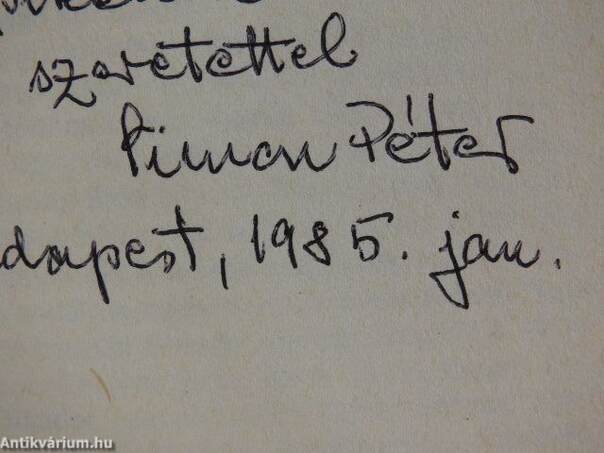 szeretettel
Simon Péter
dapest, 1985. jan.
Antikvárium.hu